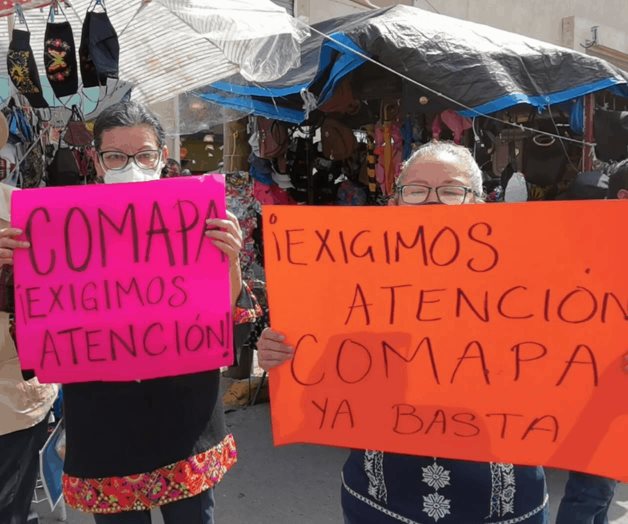 COMAPA
¡EXIGIMOS
ATENCIÓN!
¡EXIGIMOS
ATENCIÓN
COMAPA
YA BASTA